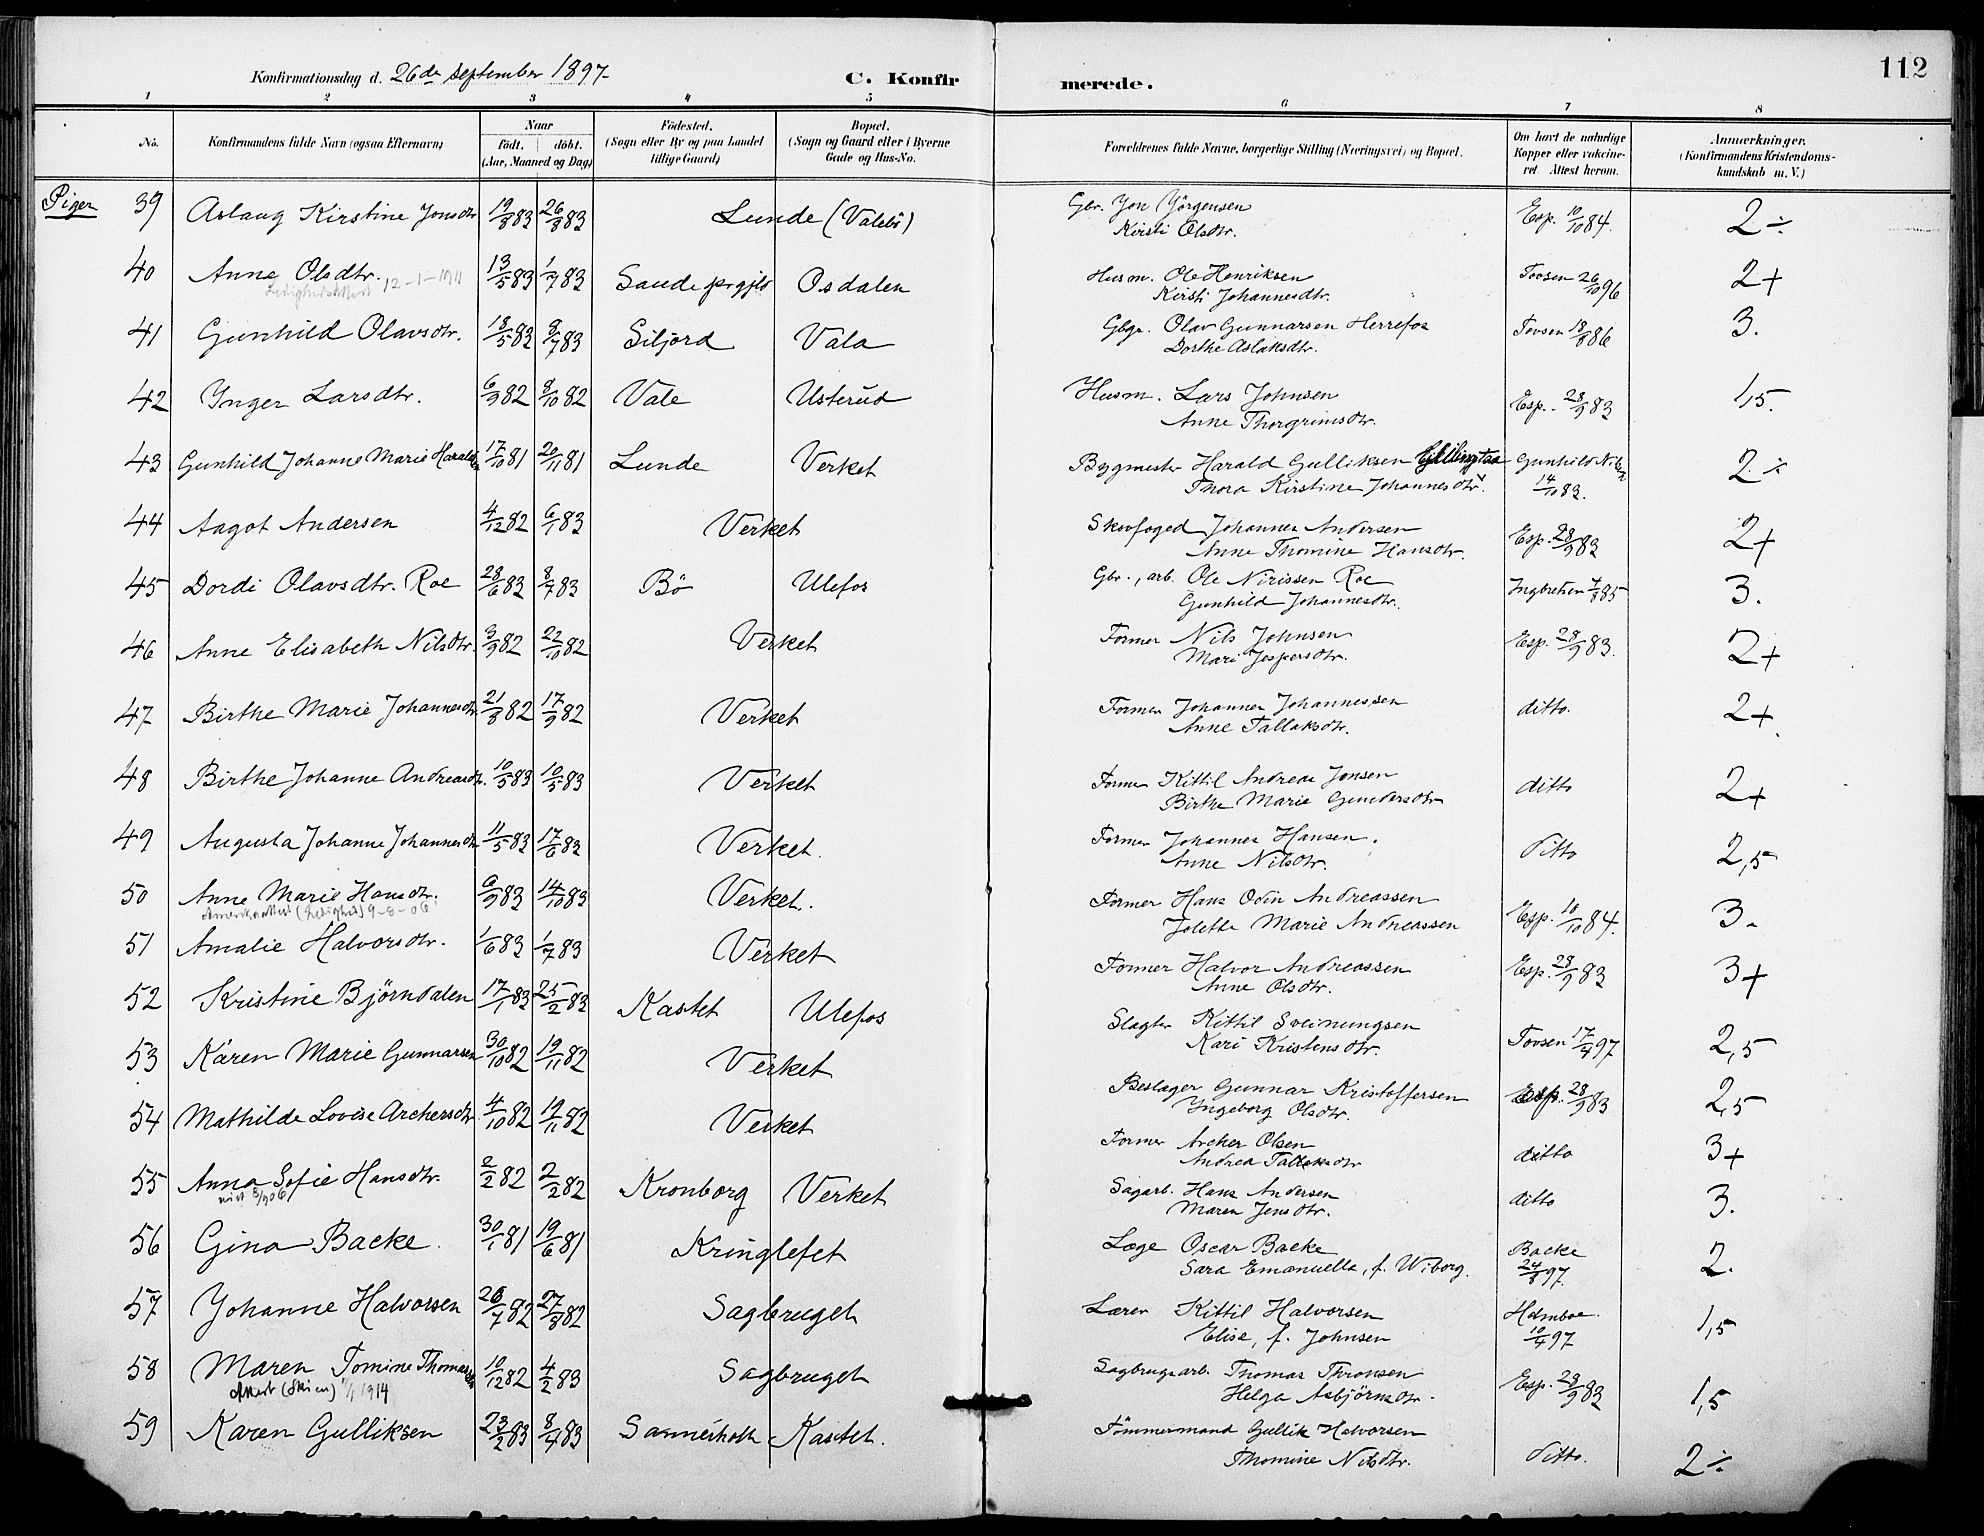 112
Konfirmationsdag d. 26de September 1897.
C. Konfirmerede.
1 2 3 4 5 6 7 8
No. Konfirmandens fulde Navn (ogsaa Efternavn) Naar født. døbt. (Aar, Maaned og Dag) Fødested. (Sogn eller By og paa Landet tillige Gaard) Bopæl. (Sogn og Gaard eller i Byerne Gade og Hus-No. Forældrenes fulde Navne, borgerlige Stilling (Næringsvei) og Bopæl. Om havt de naturlige Kopper eller vakcineret. Attest herom. Anmerkninger. (Konfirmandens Kristendomskundskab m. V.)
Piger 39 Aslaug Kirstine Jonsdtr 19/8 83 26/8 83 Lunde (Valebö) Gbr. Jon Jörgensen Esp. 10/10 84. 2÷
Kirsti Olsdtr.
40 Anne Olsdtr. 13/5 83 1/7 83 Saude prgjld Osdalen Husm. Ole Henriksen Tovsen 26/10 96 2+
Ledighedsattest 12-1-1911 Kirsti Johannesdtr.
41 Gunhild Olavsdtr. 18/5 82 8/7 83 Siljord Vala Gbgr. Olav Gunnarsen Herrefos Tovsen 18/8 86 3.
Dorthe Aslaksdtr.
42 Inger Larsdtr. 6/9 82 8/10 82 Vale Usterud Husm. Lars Johnsen Esp. 28/9 83 1,5.
Anne Thorgrimsdtr.
43 Gunhild Johanne Marie Haraldsdtr 17/10 81 20/11 81 Lunde Verket Bygmester Harald Gulliksen Gunhild Nilsen 14/10 83. 2÷
Thora Kirstine Johannesdtr.
44 Aagot Andersen 4/12 82 6/1 83 Verket Skovfoged Johannes Andersen Esp. 28/9 83 2+
Anne Thomine Hansdtr.
45 Dordi Olavsdtr. Roe 28/6 83 8/7 83 Bö Ulefos Gbr., arb. Ole Nirissen Roe Ingbretsen 4/8 85 3.
Gunhild Johannesdtr.
46 Anne Elisabeth Nilsdtr. 3/9 82 22/10 82 Verket Former Nils Johnsen Esp. 28/9 83. 2+
Mari Jespersdtr.
47 Birthe Marie Johannesdtr 21/8 82 17/9 82 Verket Former Johannes Johannessen ditto. 2+
Anne Tallaksdtr.
48 Birthe Johanne Andreasdtr. 10/5 83 10/5 83 Verket Former Kittil Andreas Jonsen ditto 2+
Birthe Marie Gundersdtr
49 Augusta Johanne Johannesdtr 11/5 83 17/6 83 Verket. Former Johannes Hansen. Ditto 2,5
Anne Nilsdtr.
50 Anne Marie Hansdtr. 6/9 83 14/10 83 Verket. Former Hans Odin Andreassen Esp. 10/10 84. 3.
Amerikaattest (Ledighed) 9-8-06 Jolette Marie Andreassen
51 Amalie Halvorsdtr. 1/6 83 1/7 83 Verket Former Halvor Andreassen Esp. 28/9 83 3+
Anne Olsdtr.
52 Kristine Björndalen 17/1 83 25/2 83 Kastet Ulefos Slagter Kittil Sveinungsen Tovsen 17/4 97 2,5
Kari Kristensdtr.
53 Karen Marie Gunnarsen 30/10 82 19/11 82 Verket Beslager Gunnar Kristoffersen Esp. 28/9 83 2,5
Ingeborg Olsdtr.
54 Mathilde Lovise Archersdtr 4/10 82 19/11 82 Verket Former Archer Olsen ditto 3+
Andrea Tallaksdtr
55 Anna Sofie Hansdtr. 2/2 82 2/2 82 Kronborg Verket Sagarb. Hans Andersen ditto 3.
Maren Jensdtr.
56 Gina Backe. 30/1 81 19/6 81 Kringlefet Læge Oscar Backe Backe 24/8 97. 2.
Sara Emanuella, f. Wiborg.
57 Johanne Halvorsen 26/7 82 27/8 82 Sagbruget Lærer Kittil Halvorsen Holmboe. 10/4 97 1,5
Elise, f. Johnsen
58 Maren Tomine Thomasdtr 10/12 82 4/2 83 Sagbruget Sagbrugsarb. Thomas Thronsen Esp. 28/9 83 1,5
Attest (Skien) 1/1 1914 Helga Asbjörnsdtr.
59 Karen Gulliksen 23/2 83 8/4 83 Sannesholt Kastet. Tömmermand Gullik Halvorsen Ditto. 2÷
Thomine Nilsdtr.